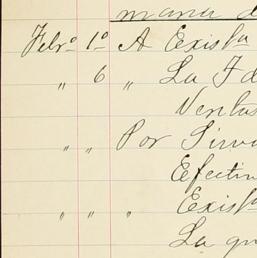 mana d
Febrº 1º A Exista
" 6 " La Fd
Ventas
" " Por
Efectiv
" " " Exista
La qu